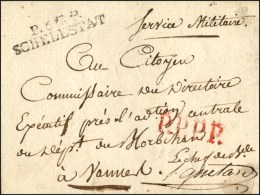 P. 67. P.
SCHELESTAT
Service Militaire
Au Citoyen
Commissaire du Directoire
Exécutif près l'ad.ion centrale
du dépt. du Morbihan
P.P.P.P.
à Vannes